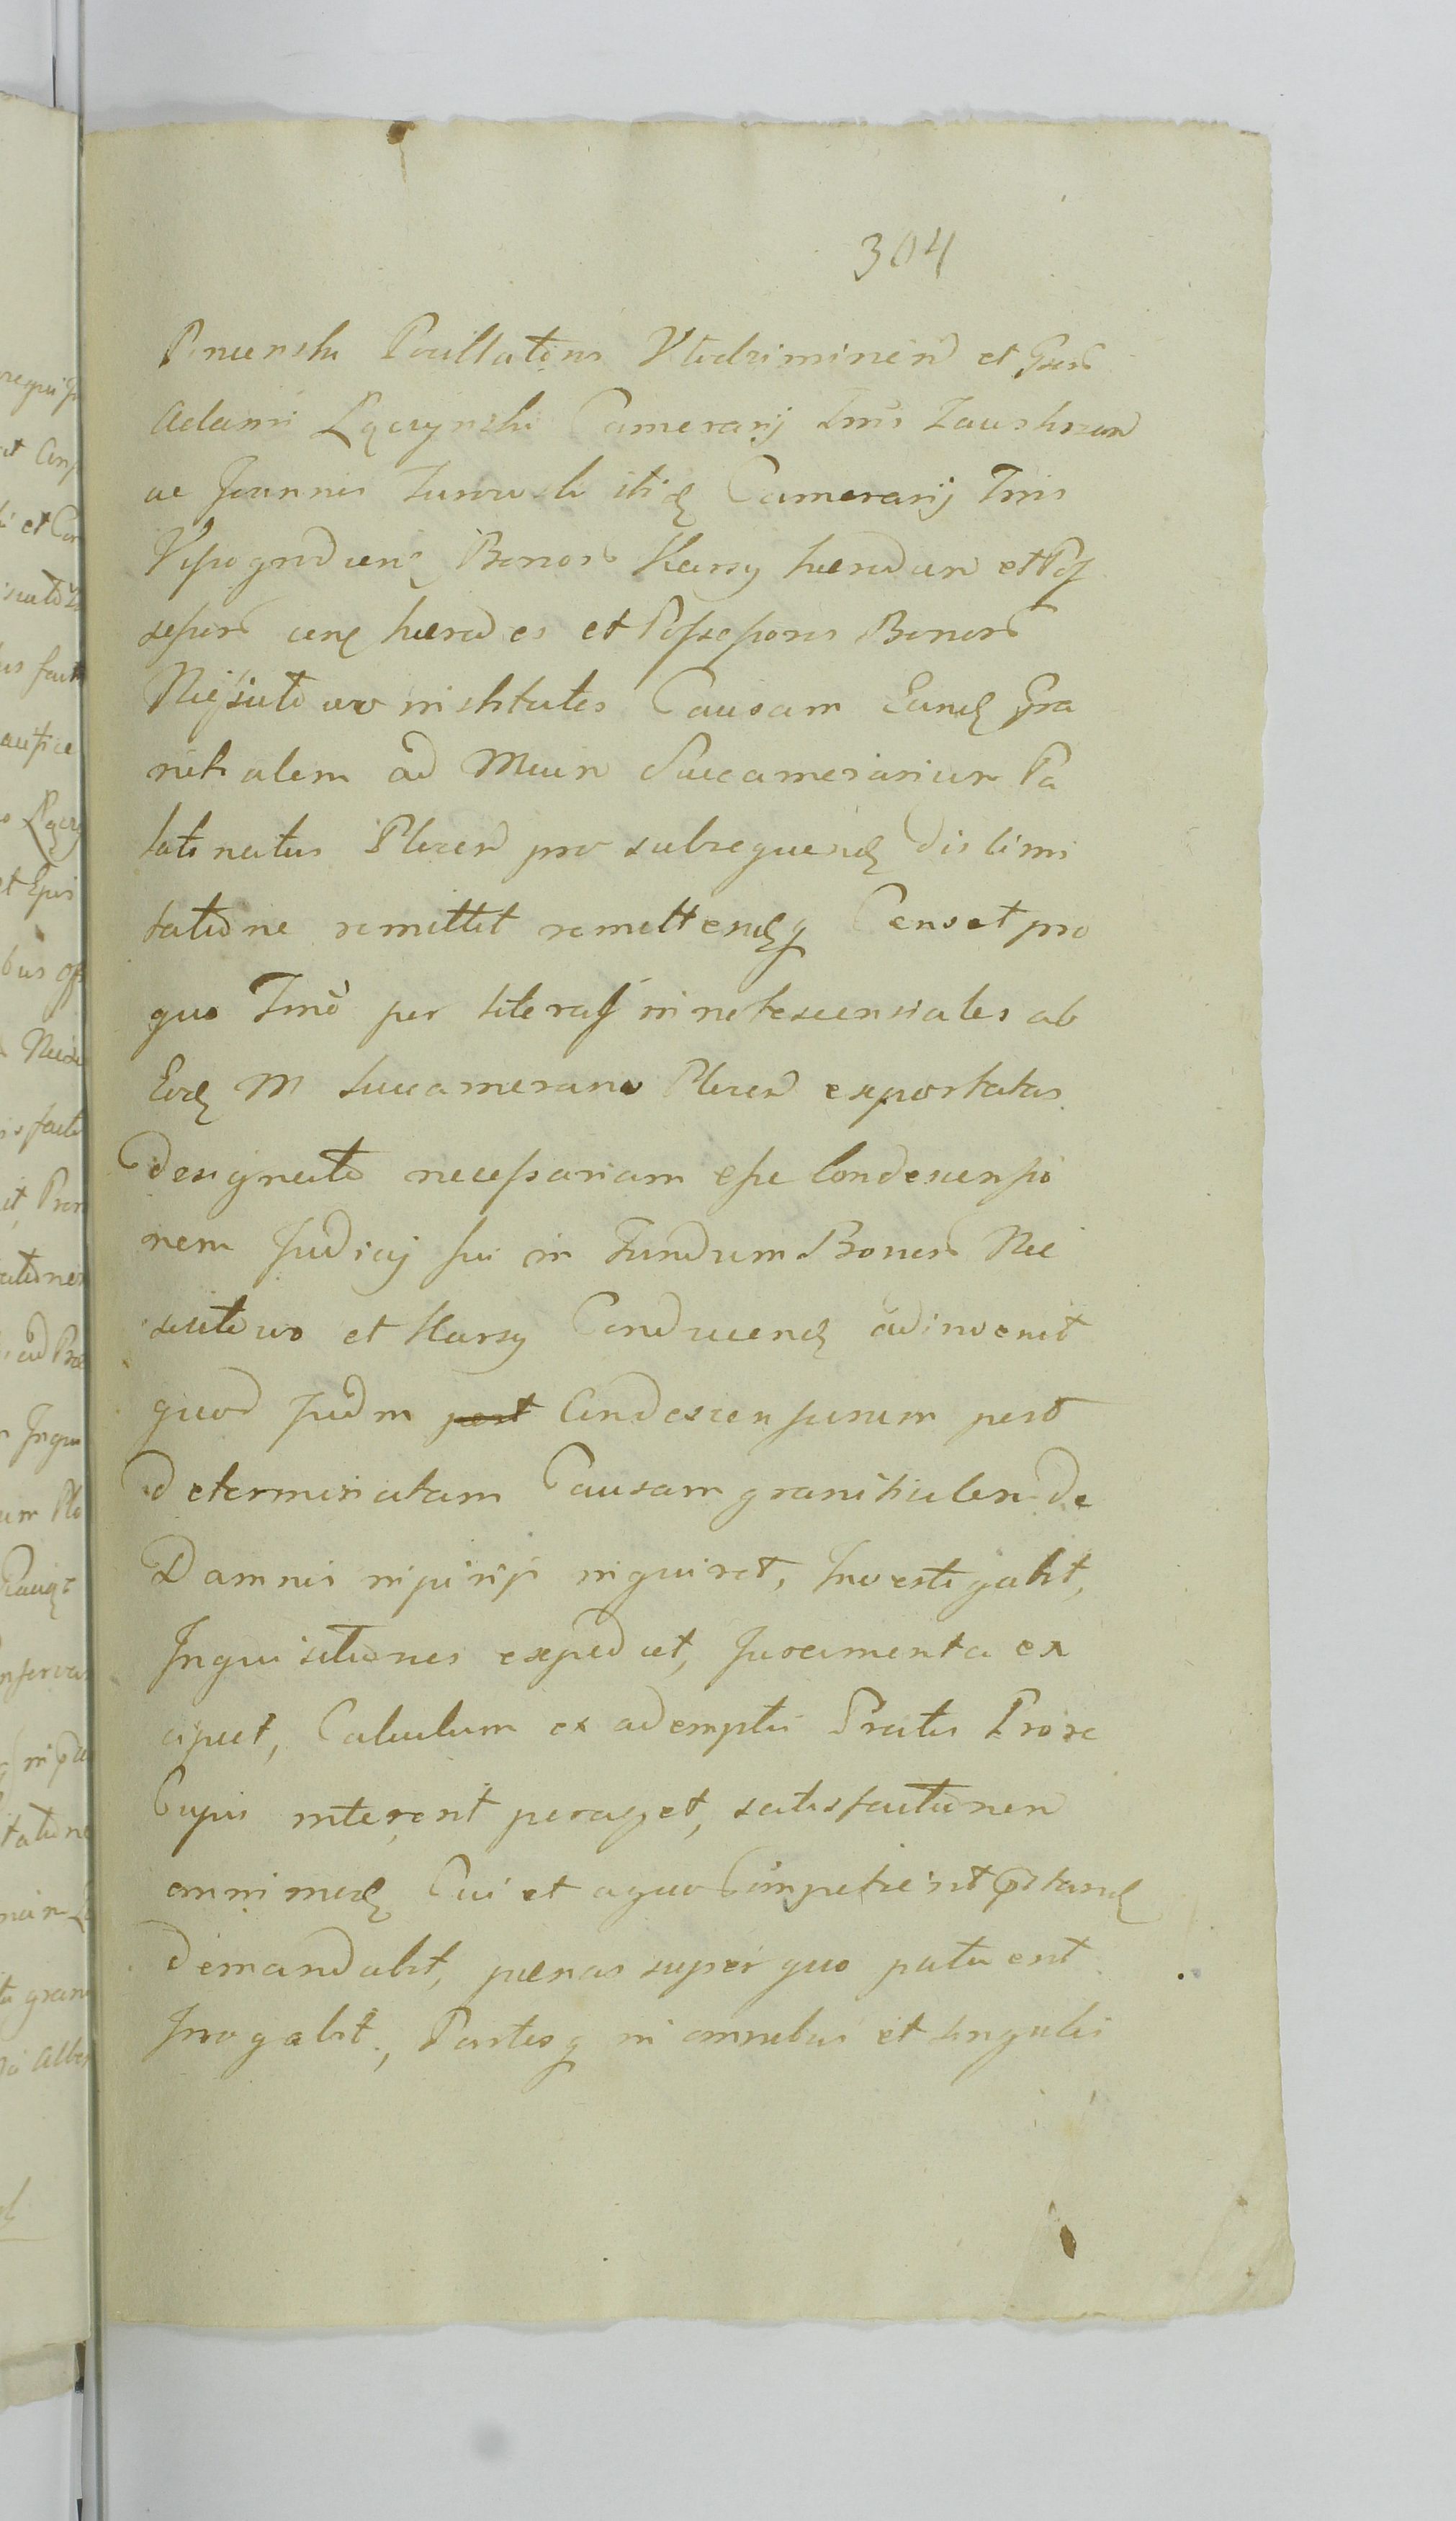 304
Pniewski Pocillatoris Vlodzimirien et Gsor
Adami Łączynski Camerarij Tris Zawskrzen
ac Joannis Turowski itid Camerarij Tris
Vissogrodien Bonor Karsy haeredum et Pos
sessor ceu haeredes et Possessores Bonor
institutes Causam Eand Gra
nitialem ad Mcum Succamerarium Pa
latinatus Plocen pro subsequend dislimi
tatione remittit remittendq Censet pro
quo Tmo per literas innotescentiales ab
Eod M Succamerario Plocen exportatas
designato necessariam esse Condescensio
nem Judicij sui in Fundum Bonor Nie
et Karsy Conducend adinvenit
quod Judm post Condescensurum post
determinatam Causam granitialem de
Damnis inquiret, Investigabit,
Inquisitiones expediet, Juramenta ex
cipiet, Calculum ex ademptis Pratis
interent peraget, satisfactionem
omnimod Cui et aquo Competierit pstand
demandabit, paenas super quo patuerit
Irrogabit, Partesq in omnibus et singulis